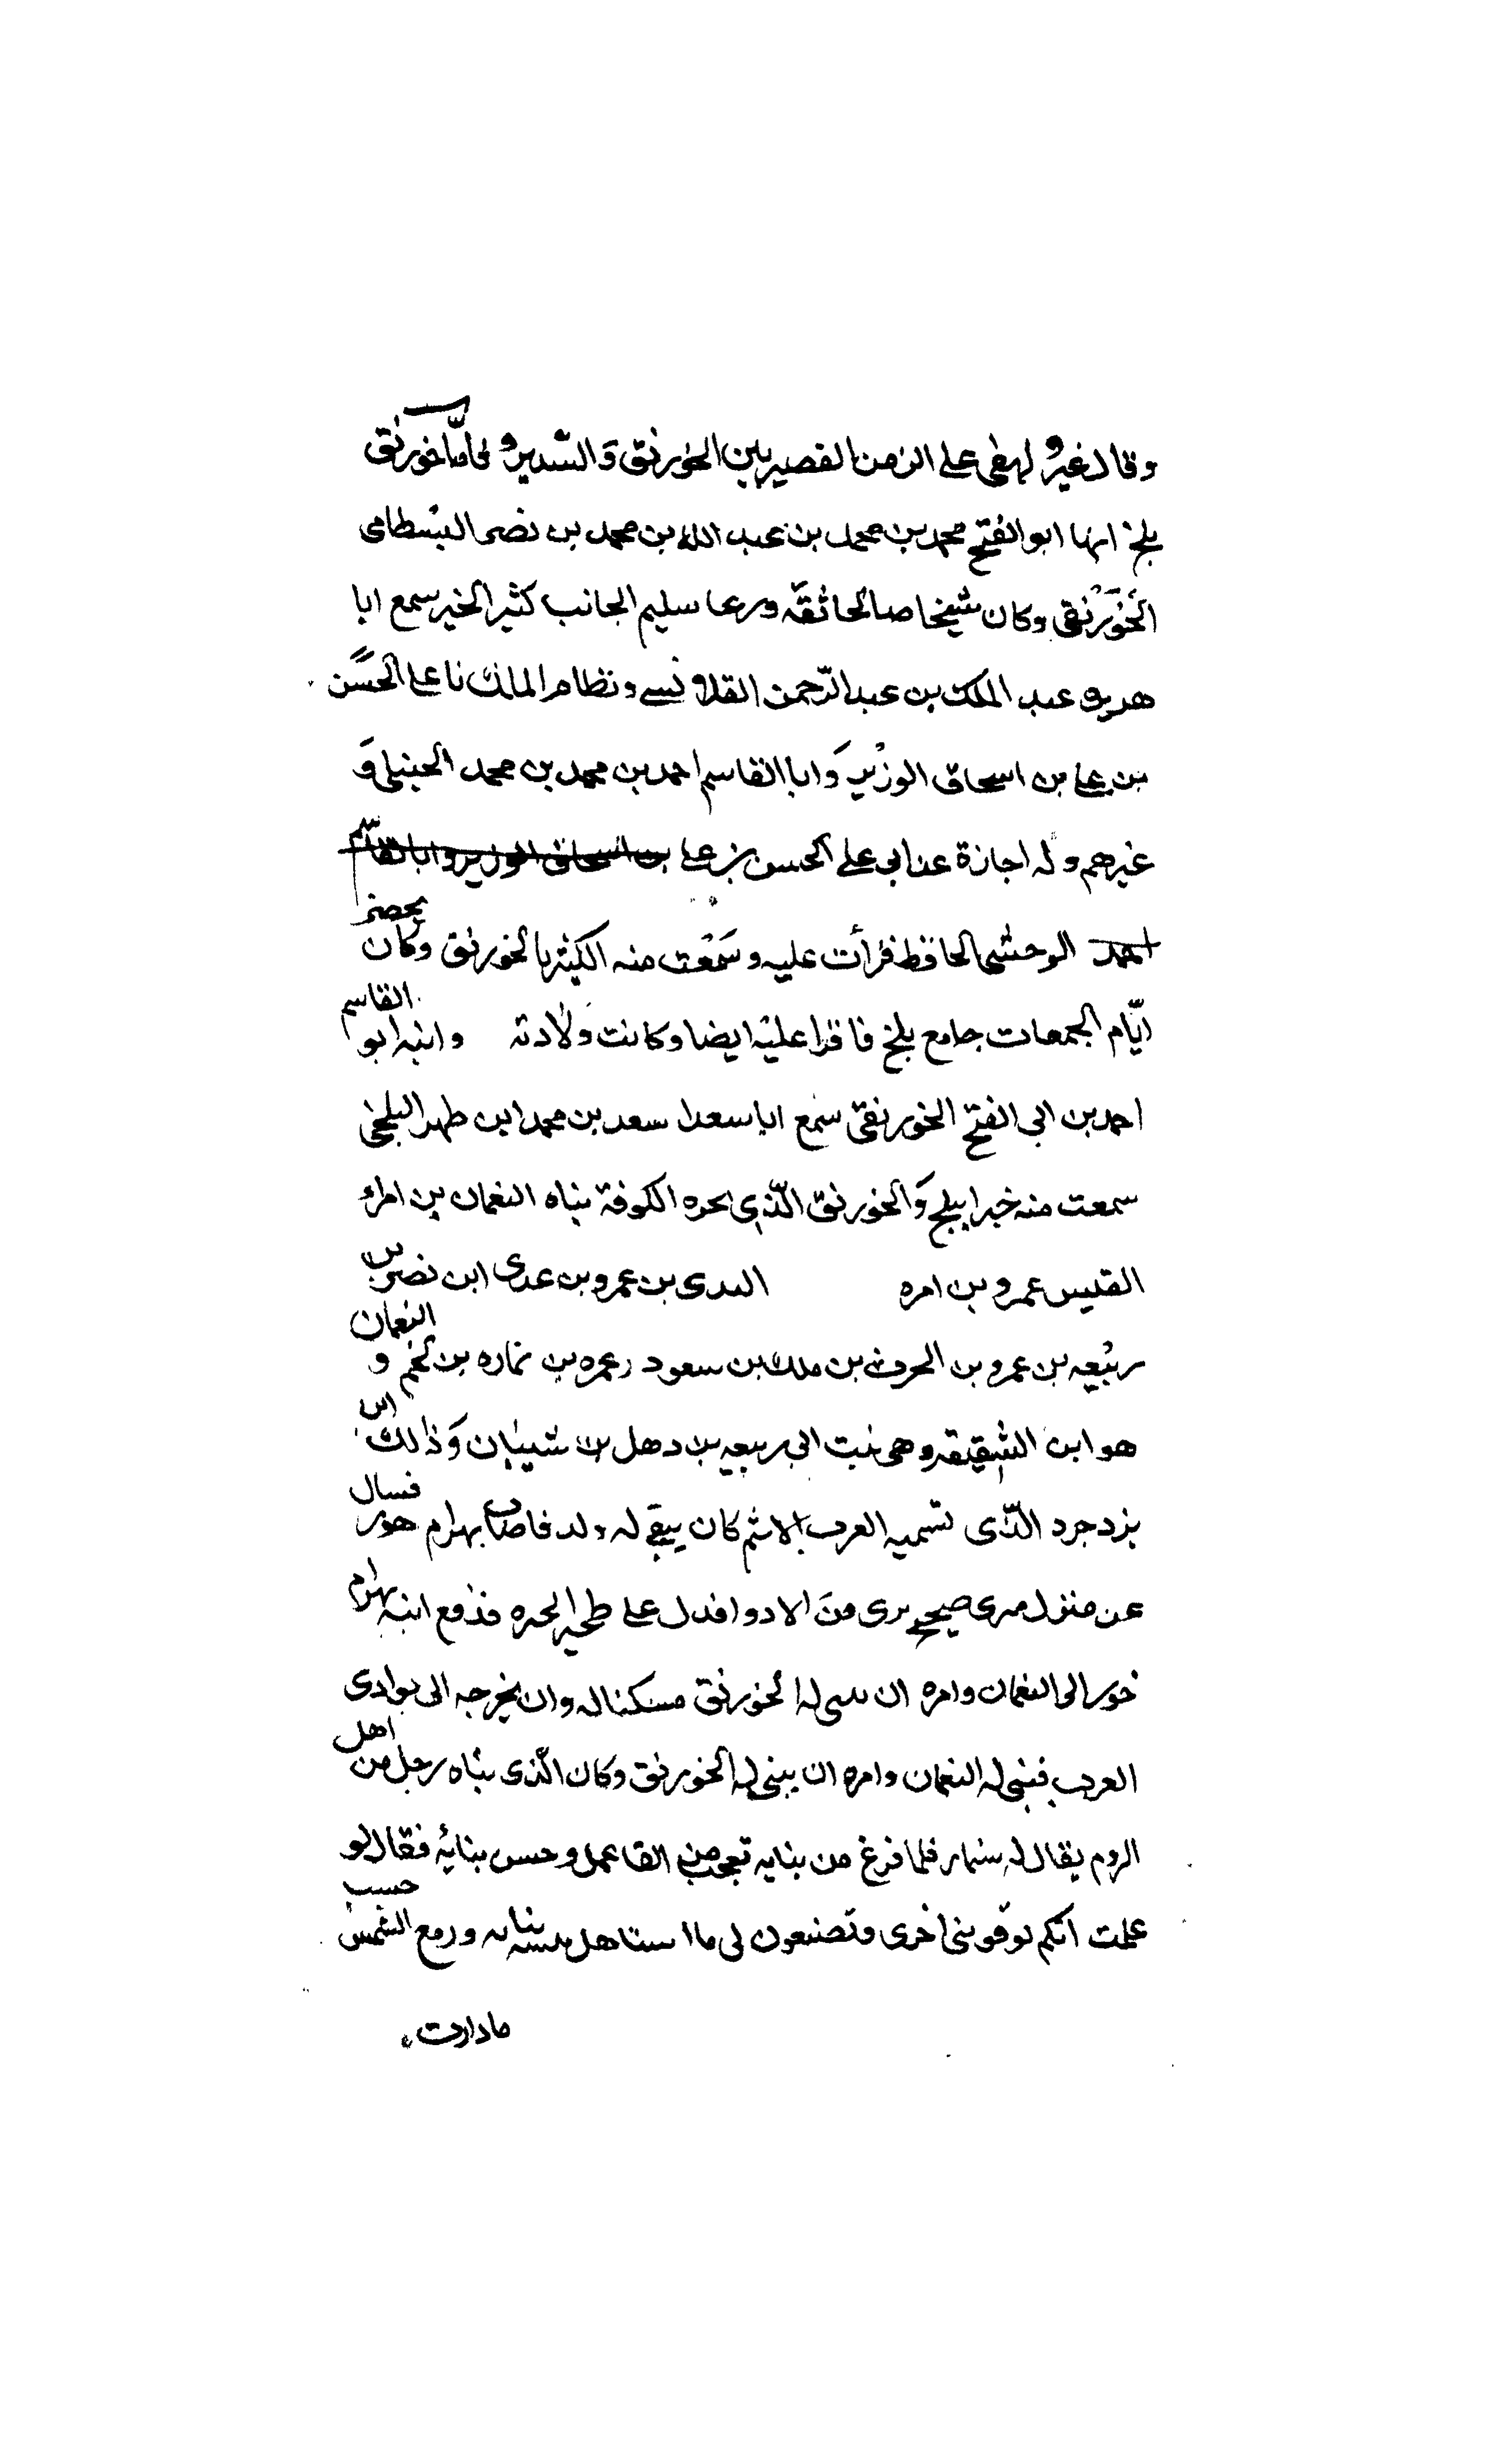 وقال غيره لهفى على الزمن القصير بين الخورنق والسّدير واما خورنق
بلخ انها ابو الفتح محمد بن محمد بن عبد الله بن محمد بن نصر البسطامى
الخَوَرْنقى وكان شيخا صالحا ثقة ورعا سليم الجانب كثير الخير سمع ابا
هريره عبد الملك بن عبد الرّحمن القلانسى ونظام الملك ابا على الحسن
بن على بن اسحاق الوزير وَابا القاسم احمد بن محمد بن محمد الحنبلى وَ
غيرهم وله اجازة عن ابى على الحسن بن على بن اسحاق الوزير وابا القاسم
احمد الوحشى الحافظ قرأت عليه وسَمعْت منه الكثير بالخورنق وكان يحضر
ايّام الجمعات جامع بلخ فاقرا عليه ايضا وكانت ولادته وابنه ابو القاسم
احمد بن ابى الفتح الخورنقى سمع ابا سعد اسعد بن محمد ابن ظهير البلخى
سمعت منه خبرا ببلخ وَالخورنق الّذى بحره الكوفة بناه النعمان بن امراء
القليس عمرو بن امره البدى بن عمرو بن عدى ابن نصر بن
ربيعه بن عمرو بن الحرث بن ملك بن سعود بن عمره بن نماره بن لخم و النعمان
هو ابن الشقيقه وهى بنت ابى ربيعه بن دهل بن شيبان وَذالك ان
يزدجرد الّذى تسميه العرب بالاثم كان يبقى له ولد فاصاب بهرام حور فسال
عن منزل مرى صحيح برى منَ الادوا فدل على ظهر الحره فدفع ابنه بهرام
حور الى النعمان وامره ان يبنى له الخورنق مسكنا له وان يخرجه الى بوادى
العرب فبنى له النعمان وامره ان يبنى له الخورنق وكان الّذى بناه رجل من اهل
الروم يقال له سنمار فلما فرغ من بنايه تعجب من القا عمل وحسن بنائه فقال لو
علمت انكم توفوننى اخرى وتصنعون لى ما استاهل بنيته بنا ورمع الشمس حسب
مادارت